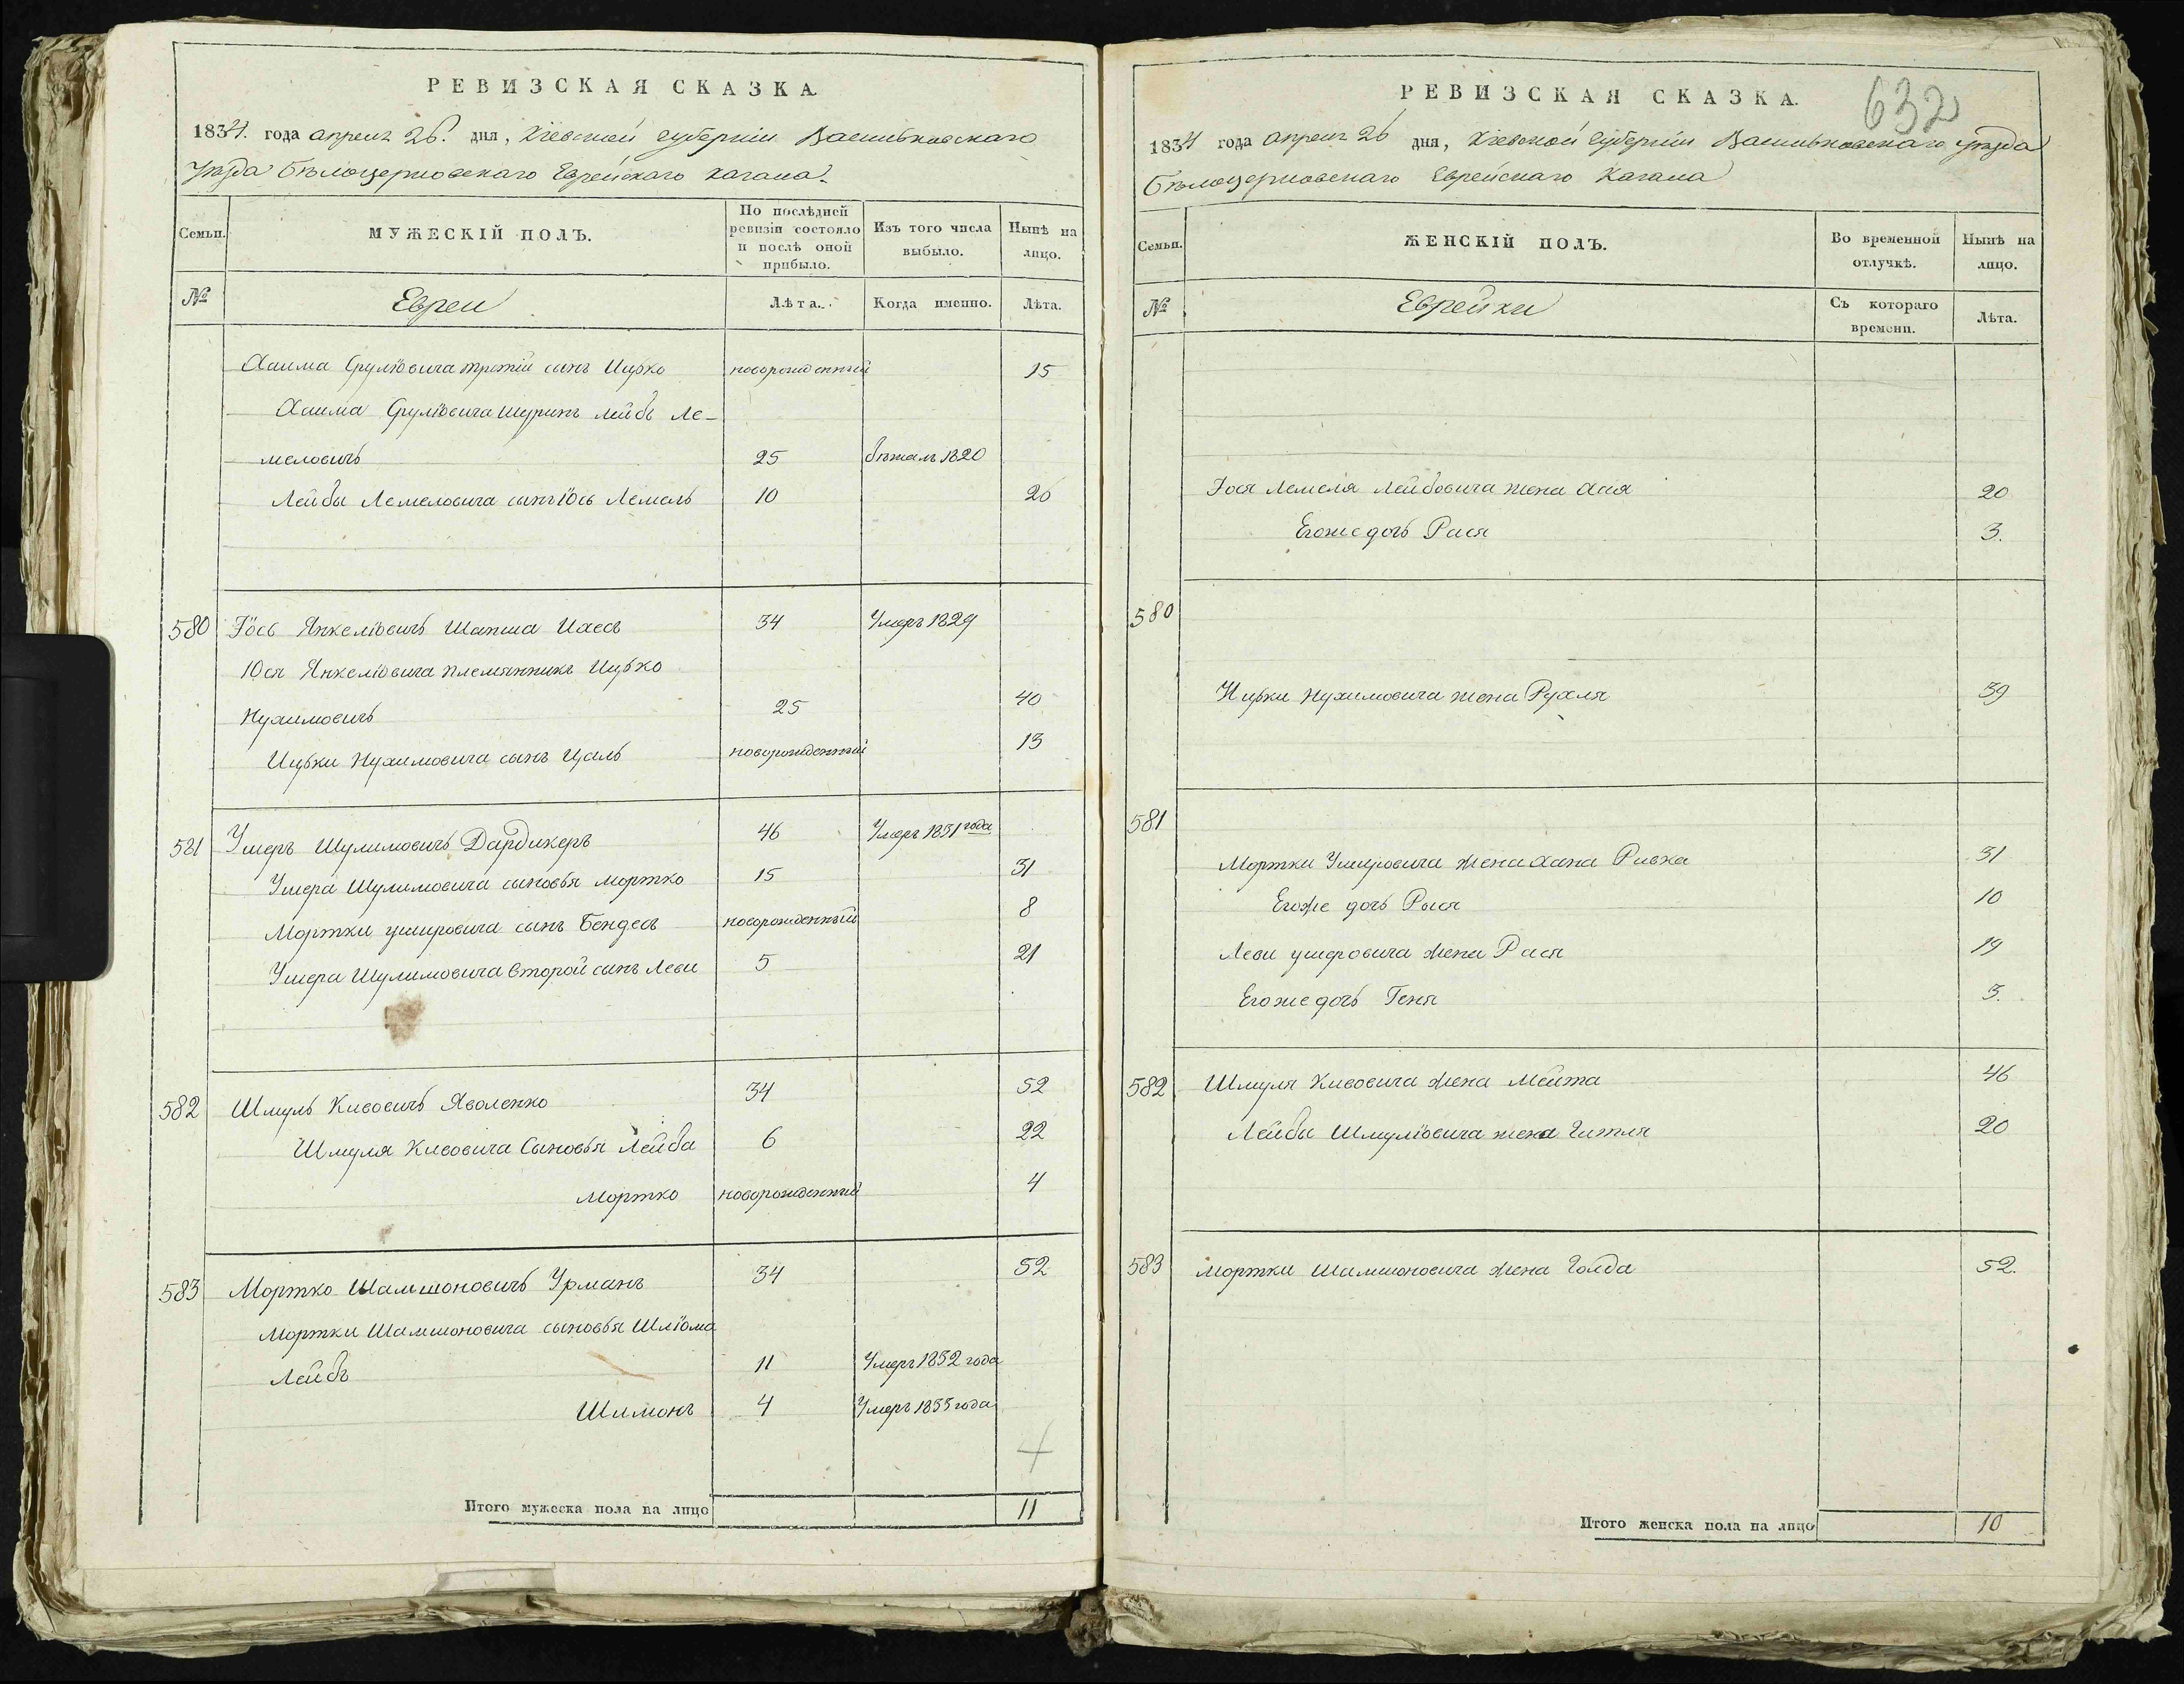 РЕВИЗСКАЯ СКАЗКА.
1834. года апреля 26. дня, Кіевской губерніи Васильковскаго
уѣзда Бѣлоцерковскаго Еврейскаго кагала.
Семьи.
МУЖЕСКІЙ ПОЛЪ.
По послѣдней ревизіи состояло и послѣ оной прибыло.
Изъ того числа выбыло.
Нынѣ на лицо.
№
Евреи
Лѣта.
Когда именно.
Лѣта.
Хаима Срулiовича третій сынъ Ицко новорожденный 15
Хаима Срулiовича шуринъ Лейбъ Ле-
меловичъ 25 бѣжалъ 1820
Лейбы Лемеловича сынъ Іось Лемель 10 26
580 Іось Янкелiовичъ Шапша 34 Умеръ 1829
Юся Янкелiовича племянникъ Ицько
Нухимовичъ 25 40
Ицьки Нухимовича сынъ Цаль новорожденный 13
581 Ушеръ Шулимовичъ Дардикеръ 46 Умеръ 1831 года
Ушера Шулимовича сыновья Мортко 15 31
Мортки Ушировича сынъ Бендеть новорожденный 8
Ушера Шулимовича второй сынъ Леви 5 21
582 Шмуль Кивовичъ Яволенко 34 52
Шмуля Кивовича Сыновья Лейба 6 22
Мортко новорожденный 4
583 Мортко Шамшоновичъ Урманъ 34 52
Мортки Шамшоновича сыновья Шлiома
Лейбъ 11 Умеръ 1832 года
Шимонъ 4 Умеръ 1833 года
Итого мужеска пола на лицо 11
РЕВИЗСКАЯ СКАЗКА.
632
1834 года апреля 26 дня, Кіевской Губерніи Васильковскаго уѣзда
Бѣлоцерковскаго Еврейскаго Кагала
Семьи.
ЖЕНСКІЙ ПОЛЪ.
Во временной отлучкѣ.
Нынѣ на лицо.
№
Еврейки
Съ котораго времени.
Лѣта.
Іося Лемеля Лейбовича жена Хая 20
Егоже дочь Рася 3.
580
Ицьки Нухимовича жена Рухля 39
581
Мортки Ушировича жена Хана Ривка 31
Егоже дочь Рыся 10
Леви Ушеровича жена Рася 19
Егоже дочь Геня 3.
582 Шмуля Кивовича жена Мейта 46
Лейбы Шмулiовича жена Гитля 20
583 Мортки Шамшоновича жена Голда 52.
Итого женска пола на лицо 10